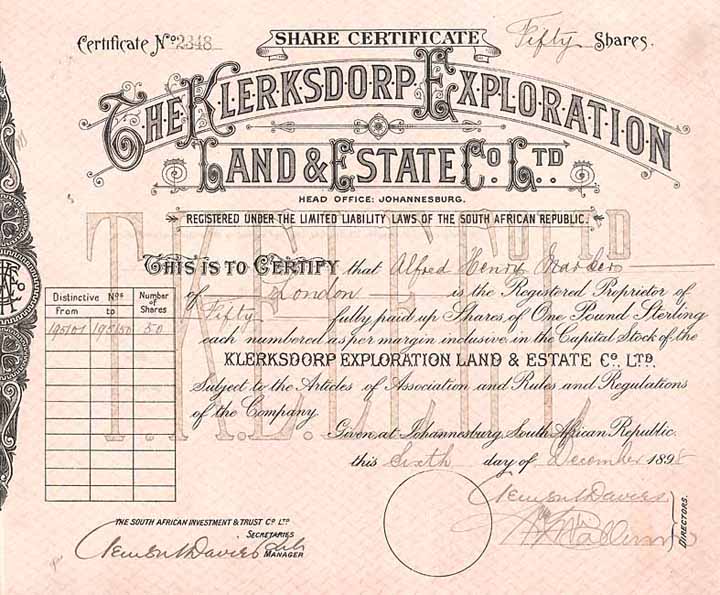 Certificate Nº 2348
SHARE CERTIFICATE
Fifty Shares.
THE KLERKSDORP EXPLORATION
LAND & ESTATE Cº LTD
HEAD OFFICE: JOHANNESBURG.
REGISTERED UNDER THE LIMITED LIABILITY LAWS OF THE SOUTH AFRICAN REPUBLIC.
T.K.E.L.E. Cº LTD
THIS IS TO CERTIFY that Alfred Henry
of London is the Registered Proprietor of
Fifty fully paid up Shares of One Pound Sterling
each numbered as per margin inclusive in the Capital Stock of the
KLERKSDORP EXPLORATION LAND & ESTATE Cº, LTD.
Subject to the Articles of Association and Rules and Regulations
of the Company.
Given at Johannesburg South African Republic.
this Sixth day of December 1898
Distinctive Nºs Number of Shares
From to
195101 195150 50
THE SOUTH AFRICAN INVESTMENT & TRUST Cº LTD
SECRETARIES
Clement Davies
MANAGER
Clement Davies
DIRECTORS.